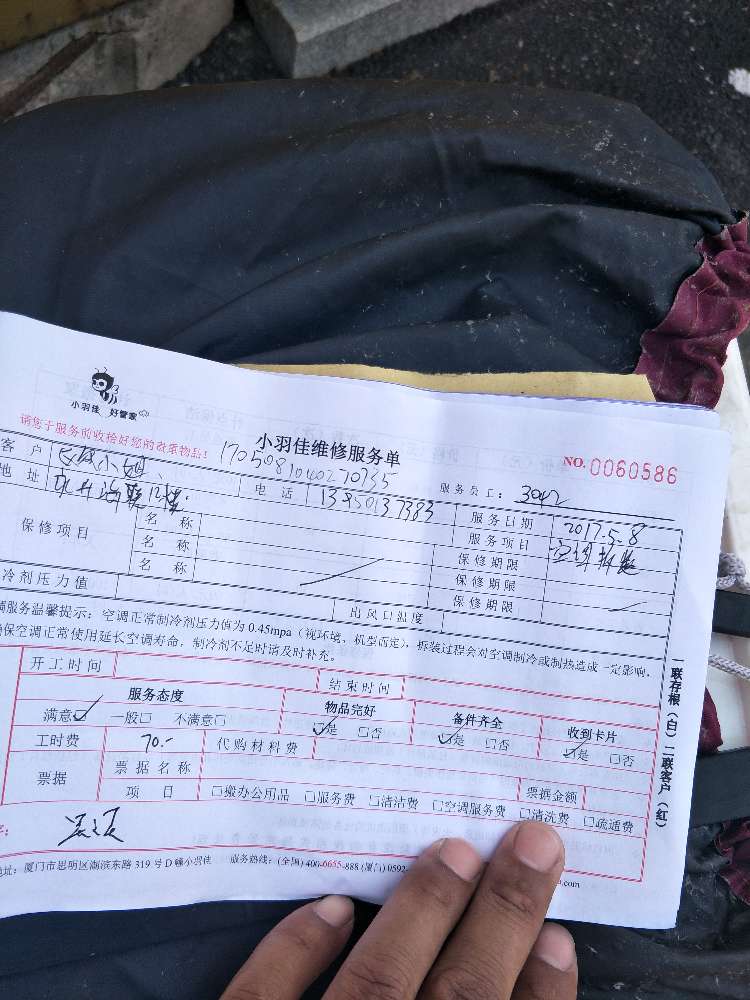 小羽佳 好管家
请您于服务前收拾好您的贵重物品!
小羽佳维修服务单
NO.0060586
1705081040270735
服务员工: 3042
客户 小姐
电话 13950137383
服务日期 2017.5.8
地址
服务项目 空调拆装
保修项目
名称
保修期限
名称
保修期限
名称
保修期限
冷剂压力值
出风口温度
调服务温馨提示: 空调正常制冷剂压力值为 0.45mpa (视环境、机型而定), 拆装过程会对空调制冷或制热造成一定影响,
确保空调正常使用延长空调寿命, 制冷剂不足时请及时补充。
开工时间
结束时间
服务态度
物品完好
备件齐全
收到卡片
满意☑ 一般□ 不满意□
☑是 □否
☑是 □否
☑是 □否
工时费 70.-
代购材料费
票据
票据名称
票据金额
项目 □搬办公用品 □服务费 □清洁费 □空调服务费 □清洗费 □疏通费
地址: 厦门市思明区湖滨东路 319 号 D 幢小羽佳 服务热线: (全国) 400-6655-888 (厦门) 0592-
一联存根(白) 二联客户(红)